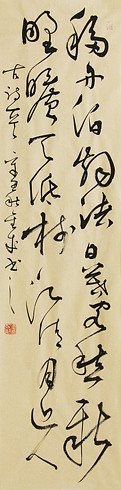 移舟泊烟渚日暮客愁新
野曠天低树江清月近人
古诗